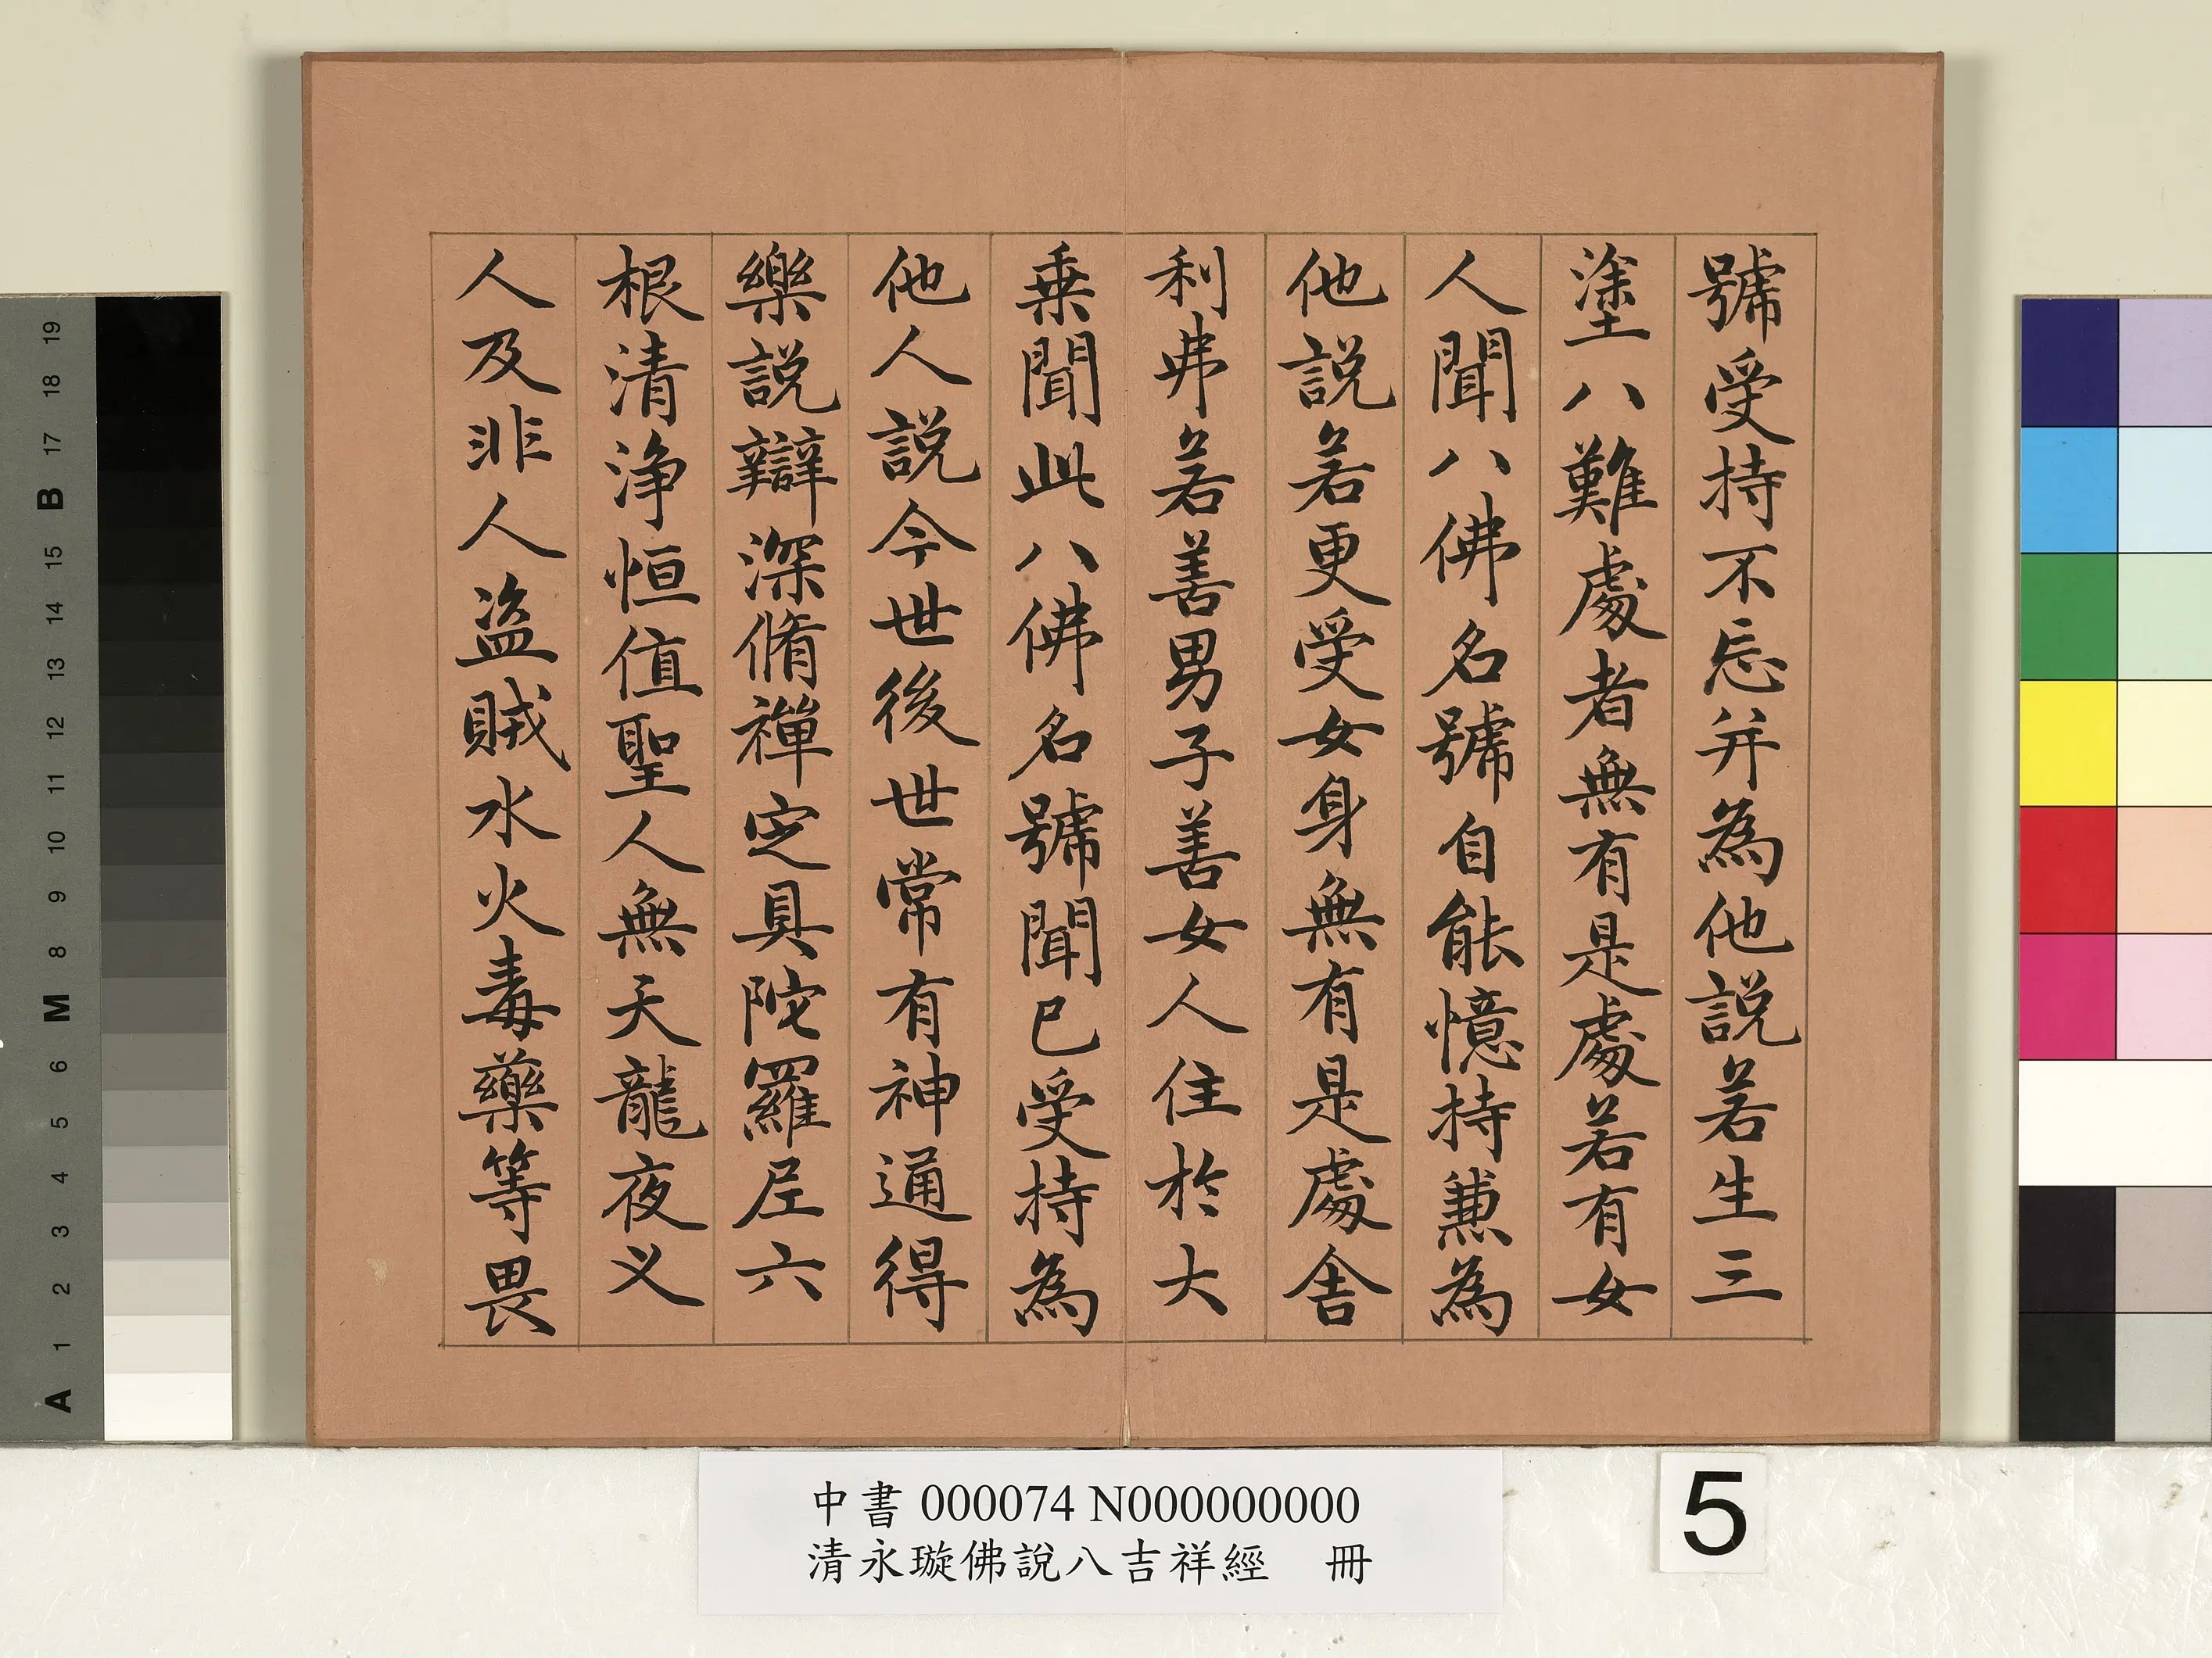 號受持不忘并為他說若生三
塗八難處者無有是處若有女
人聞八佛名號自能憶持兼為
他說若更受女身無有是處舍
利弗若善男子善女人住於大
乗聞此八佛名號聞已受持為
他人說今世後世常有神通得
樂說辯深脩禪定具陀羅尼六
根清淨恒值聖人無天龍夜义
人及非人盜賊水火毒藥等畏
中書 000074 N000000000
清永璇佛說八吉祥經 冊
5
19
18
17
B
15
14
13
12
11
10
9
8
M
6
5
4
3
2
1
A